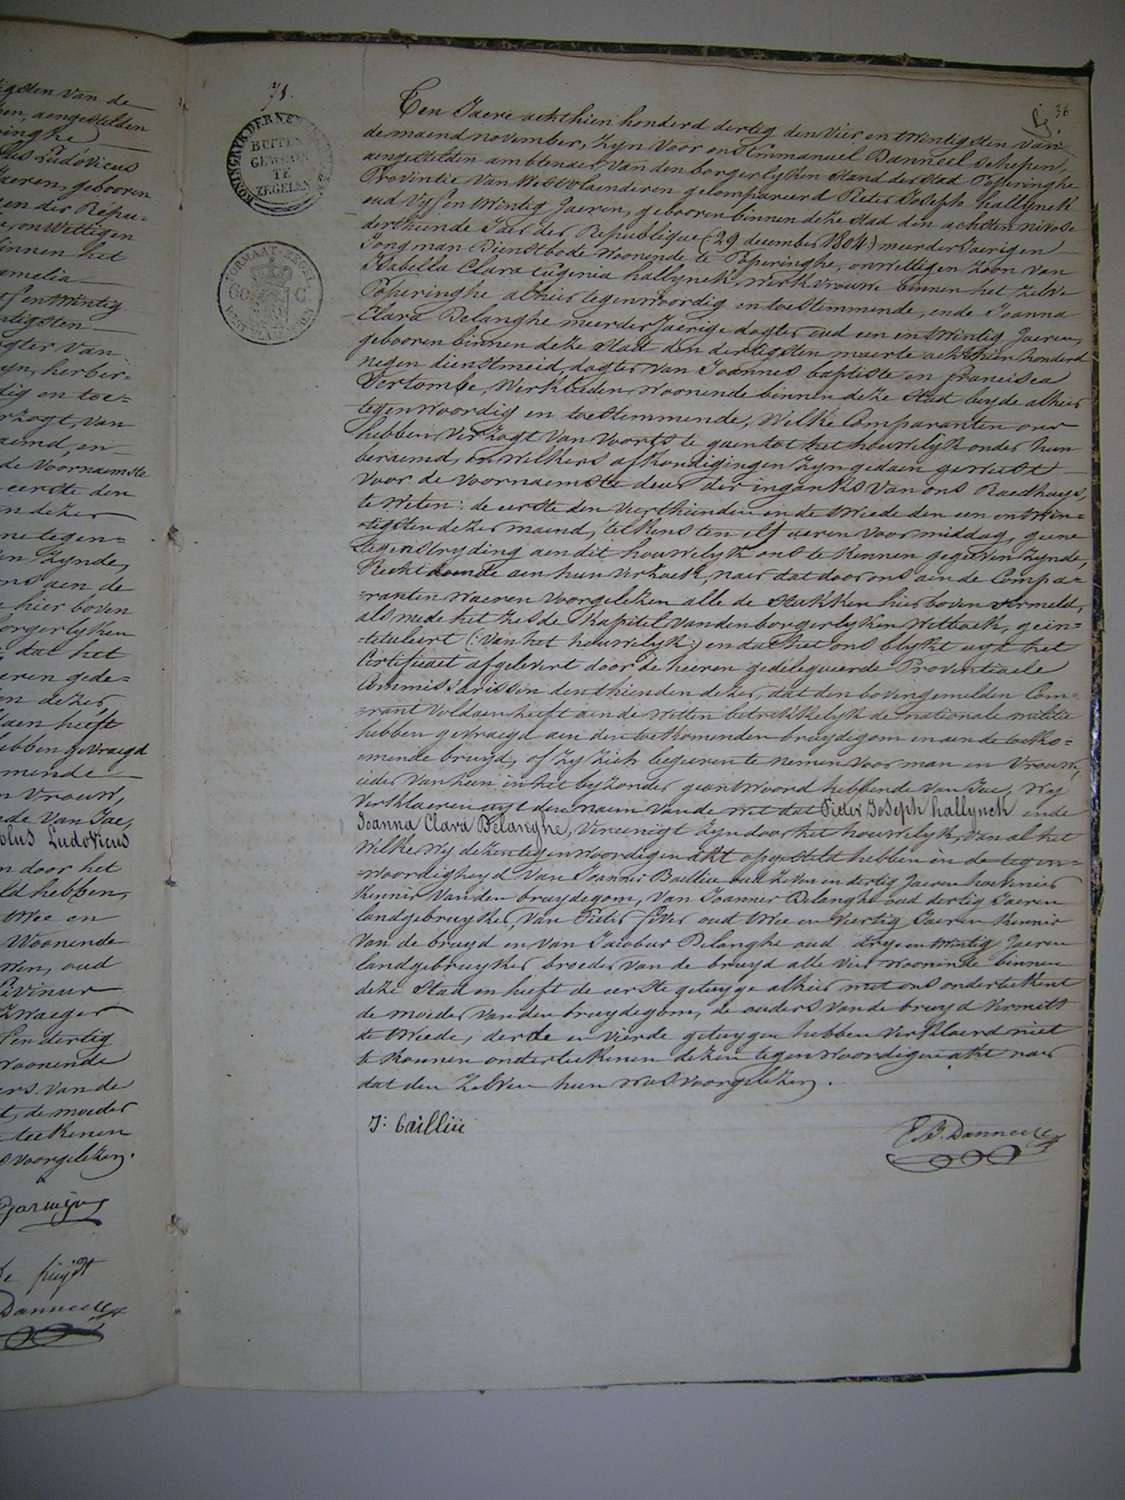 igsten van de
en, aengestelden
inghe
lus Ludovicus
Jaeren, gebooren
en der Répu-
onwettigen
binnen het
amelia
tigsten
gter van
yn, herber-
dig en toe-
rzogt, van
aemd, en
de voornaemste
eerste den
ne tegen-
en zynde,
ons aen de
hier boven
orgerlyken
dat het
eren gede-
en dezer
daen heeft
hebben gevraegd
mende
n vrouw,
nde van Jae,
olus Ludovicus
n door het
ld hebben,
twee en
woonende
wen, oud
Livinus
zwaeger
fendertig
woonende
ers van de
t, de moeder
teekenen
s voorgelezen.
de fuijdt
Danneel
71.
36
KONINGRYK DER NE
BUITEN
GEWOON
TE
ZEGELEN
FORMAAT ZEGEL
60 C
Ten Jaere achthien honderd dertig den vier en twintigsten van
de maend november, zyn voor ons Emmanuel Danneel schepen,
aengestelden ambtenaer van den borgerlyken stand der stad Poperinghe
Provintie van Westvlaenderen gecompareerd Pieter Joseph hallynck
oud vyf en twintig Jaeren, gebooren binnen deze stad den achsten nivose
derthiende Jaer der Republique (29 december 1804) meerderjaerigen
Jongman Dienstbode woonende te Poperinghe, onwettigen zoon van
Isabella Clara Eugenia hallynck, werkvrouwe binnen het zelve
Poperinghe alhier tegenwoordig en toestemmende, ende Joanna
Clara Delanghe meerderjaerige dogter oud een en twintig Jaeren,
gebooren binnen deze stad den dertigsten maerte achthien honderd
negen dienstmeid, dogter van Joannes baptiste en francisca
Vertombé, werklieden, woonende binnen deze stad beyde alhier
tegenwoordig en toestemmende, Welke Comparanten ons
hebben verzogt van voorts te gaen tot het houwelyk onder hun
beraemd, en welkers afkondigingen zyn gedaen geweest
voor de voornaemste deur der ingank van ons Raedhuys,
te weten: de eerste den vierthienden en de tweede den een en twin-
tigsten dezer maend, telkens ten elf ueren voormiddag, geene
tegenstryding aen dit houwelyk ons te kennen gegeven zynde,
Recht doende aen hun verzoek, naer dat door ons aen de Compa-
ranten waeren voorgelezen alle de stukken hier boven vermeld,
als mede het zesde Kapitel van den borgerlyken Wetboek, gein-
tituleert (: van het houwelyk :) en dat het ons blykt uyt het
Certificaet afgelevert door de heeren gedelegueerde Provintiaele
Commissarissen den thienden dezer, dat den bovengemelden Com-
rant voldaen heeft aen de wetten betrekkelyk de nationale militie
hebben gevraegd aen den toekomenden bruydegom en aen de toeko-
mende bruyd, of zy zich begeeren te nemen voor man en vrouw,
ieder van hun in het byzonder geantwoord hebbende van Jae, Wy
verklaeren uyt den naem van de wet dat Pieter Joseph hallynck ende
Joanna Clara Delanghe, vereenigt zyn door het houwelyk, van al het
Welke wy dezen tegenwoordigen akt opgesteld hebben in de tegen-
woordigheyd van Joannes Baillieu oud zeven en dertig Jaeren hovenier
kennis van den bruydegom, van Joannes Delanghe oud dertig Jaeren
landgebruyker, van Pieter oud twee en viertig Jaeren kennis
van de bruyd en van Jacobus Delanghe oud dry en twintig Jaeren
landgebruyker broeder van de bruyd alle vier woonende binnen
deze stad en heeft de eerste getuyge alhier met ons onderteekent
de moeder van den bruydegom, de ouders van de bruyd vermits
de tweede, derde en vierde getuygen hebben verklaerd niet
te konnen onderteekenen dezen tegenwoordigen akt naer
dat den zelven hun was voorgelezen.
J: bailliü
E. B. Danneel